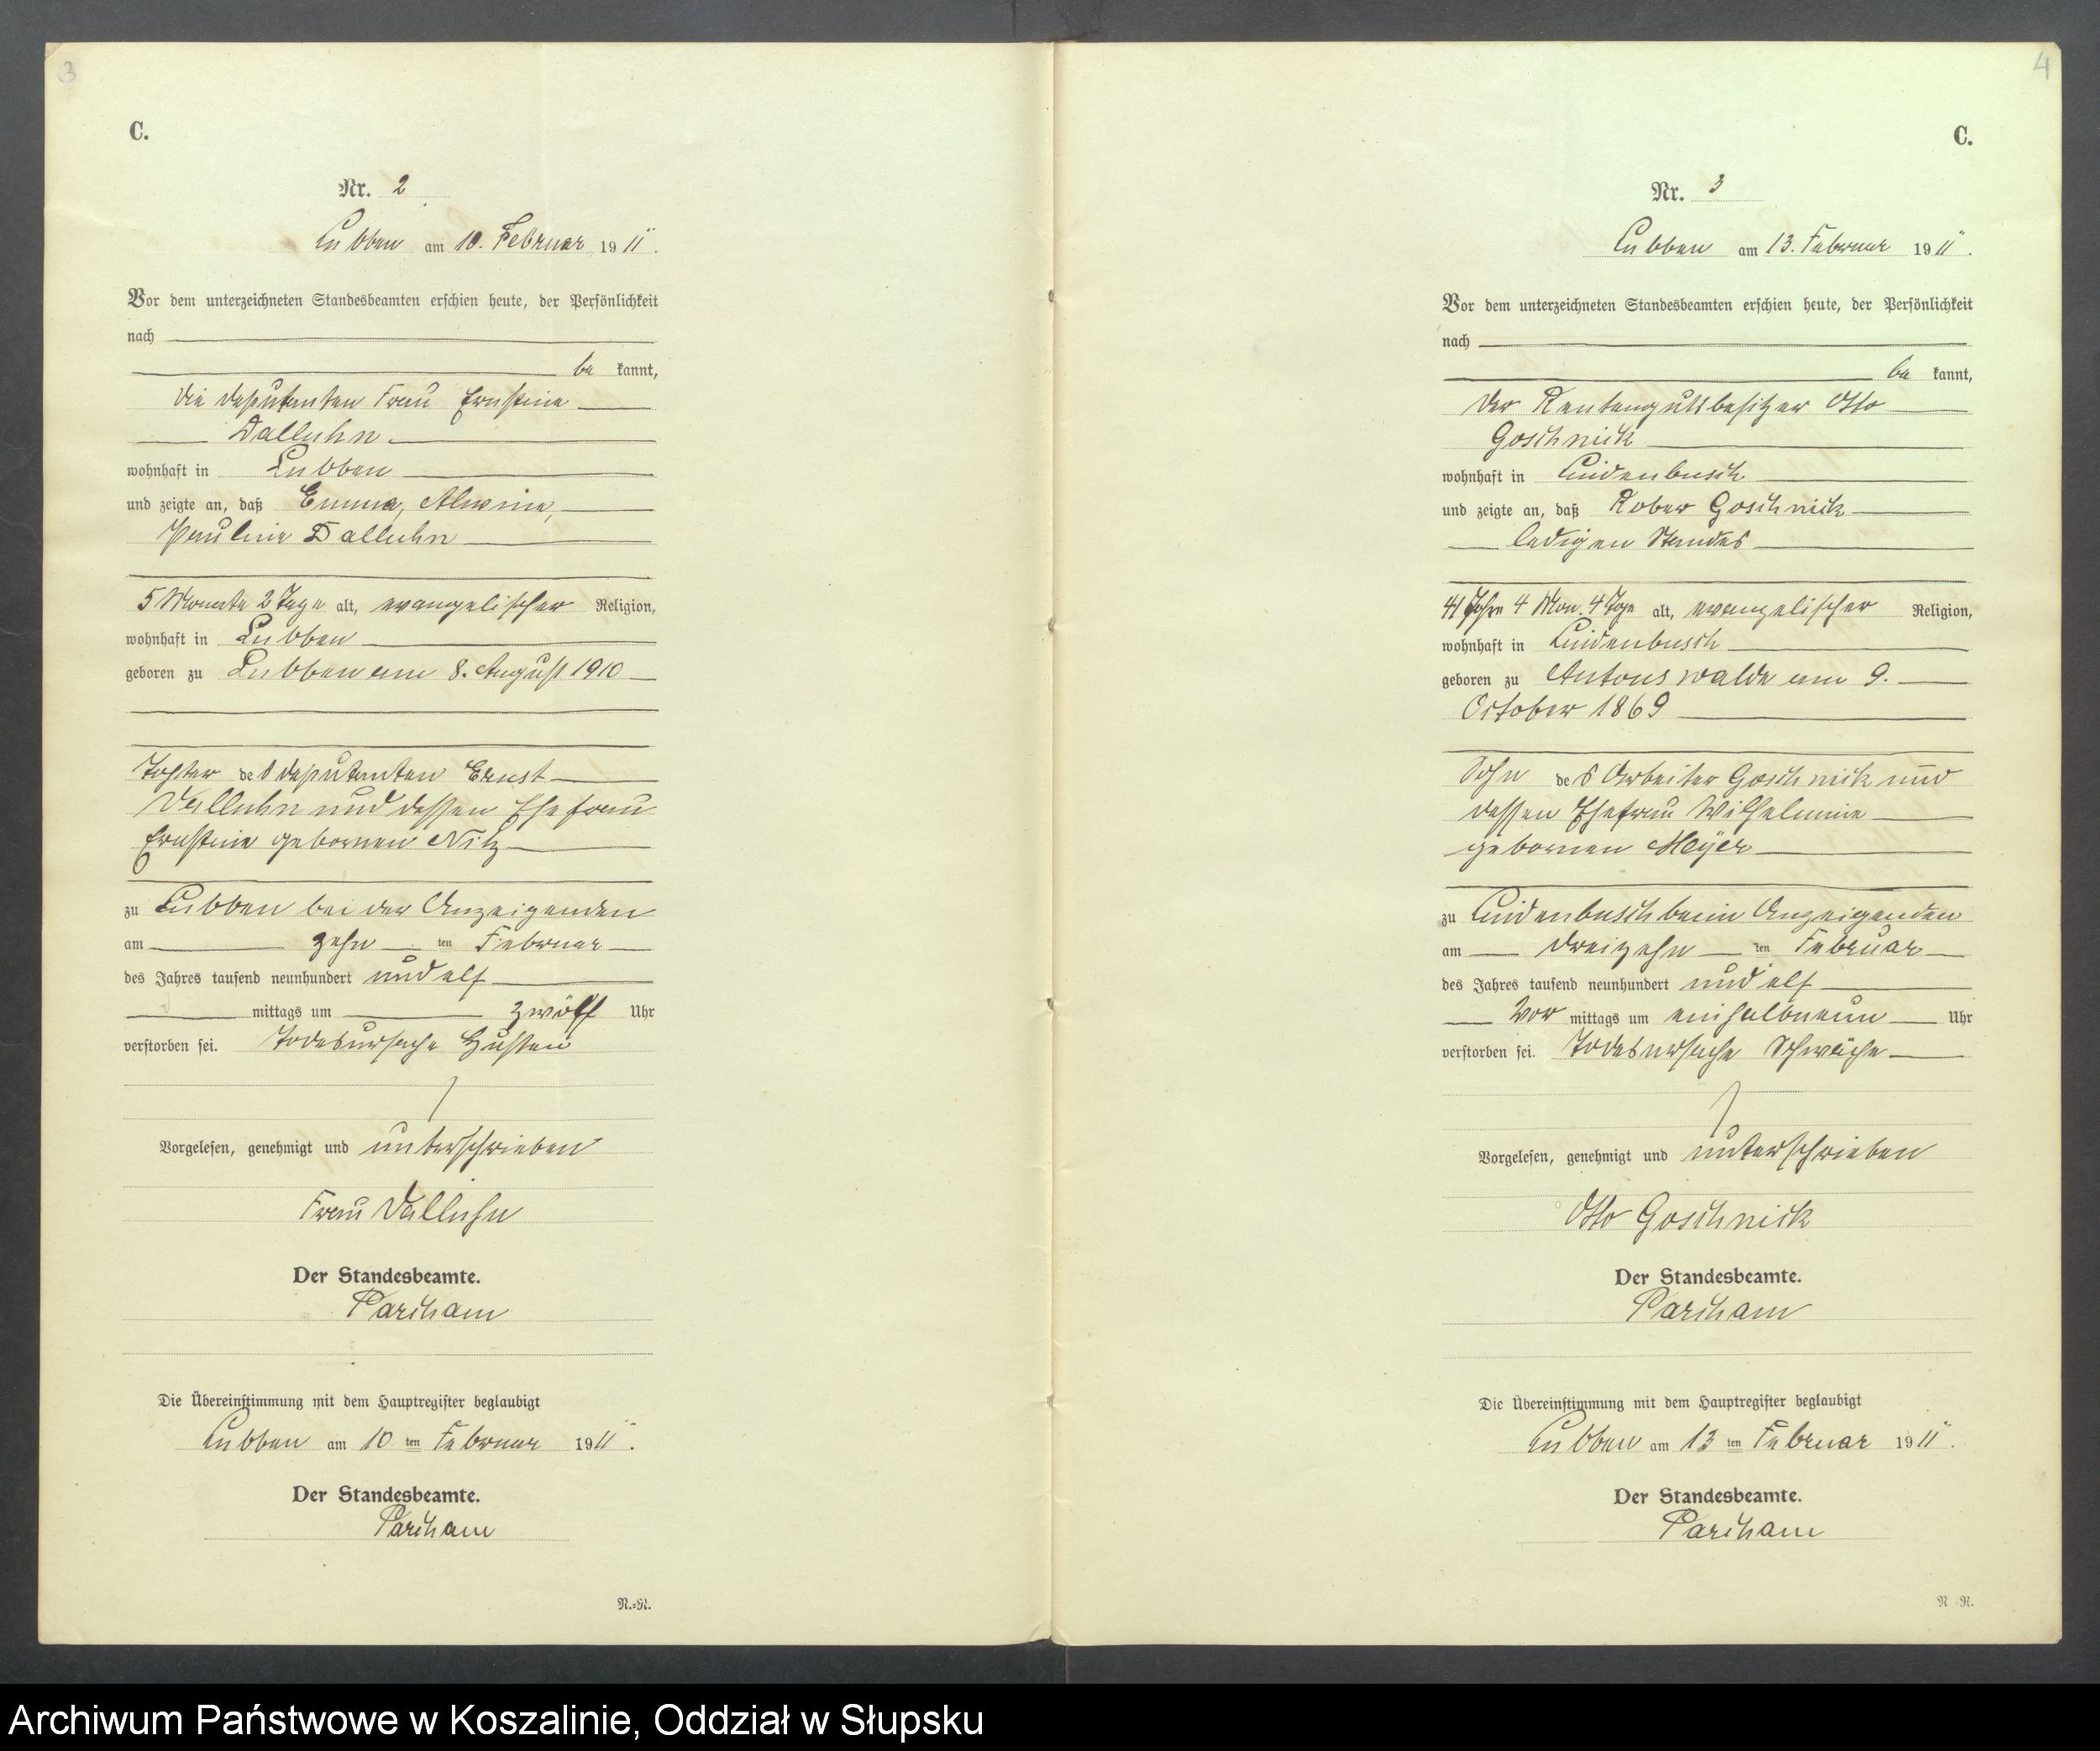 3
C.
Nr. 2
Lubben am 10. Februar 1911.
Vor dem unterzeichneten Standesbeamten erschien heute, der Persönlichkeit
nach
be kannt,
die Deputanten Frau Ernstine
Dalluhn
wohnhaft in Lubben
und zeigte an, daß Emma, Alwine,
Pauline Dalluhn
5 Monate 2 Tage alt, evangelischer Religion,
wohnhaft in Lubben
geboren zu Lubben am 8. August 1910
Tochter des Deputanten Ernst
Dalluhn und dessen Ehefrau
Ernstine gebornen Nitz
zu Lubben bei der Anzeigenden
am zehn ten Februar
des Jahres tausend neunhundert und elf
mittags um zwölf Uhr
verstorben sei. Todesursache Husten
Vorgelesen, genehmigt und unterschrieben
Frau Dalluhn
Der Standesbeamte.
Parcham
Die Übereinstimmung mit dem Hauptregister beglaubigt
Lubben am 10 ten Februar 1911.
Der Standesbeamte.
Parcham
N.=R.
4
C.
Nr. 3
Lubben am 13. Februar 1911.
Vor dem unterzeichneten Standesbeamten erschien heute, der Persönlichkeit
nach
be kannt,
der Rentengutsbesitzer Otto
Goschnick
wohnhaft in Lindenbusch
und zeigte an, daß Rober Goschnick
ledigen Standes
41 Jahre 4 Mon. 4 Tage alt, evangelischer Religion,
wohnhaft in Lindenbusch
geboren zu Antonswalde am 9.
October 1869
Sohn des Arbeiter Goschnick und
dessen Ehefrau Wilhelmine
gebornen Meyer
zu Lindenbusch beim Anzeigenden
am dreizehn ten Februar
des Jahres tausend neunhundert und elf
Vor mittags um einhalbneun Uhr
verstorben sei. Todesursache Schwäche
Vorgelesen, genehmigt und unterschrieben
Otto Goschnick
Der Standesbeamte.
Parcham
Die Übereinstimmung mit dem Hauptregister beglaubigt
Lubben am 13 ten Februar 1911.
Der Standesbeamte.
Parcham
N.=R.
Archiwum Państwowe w Koszalinie, Oddział w Słupsku